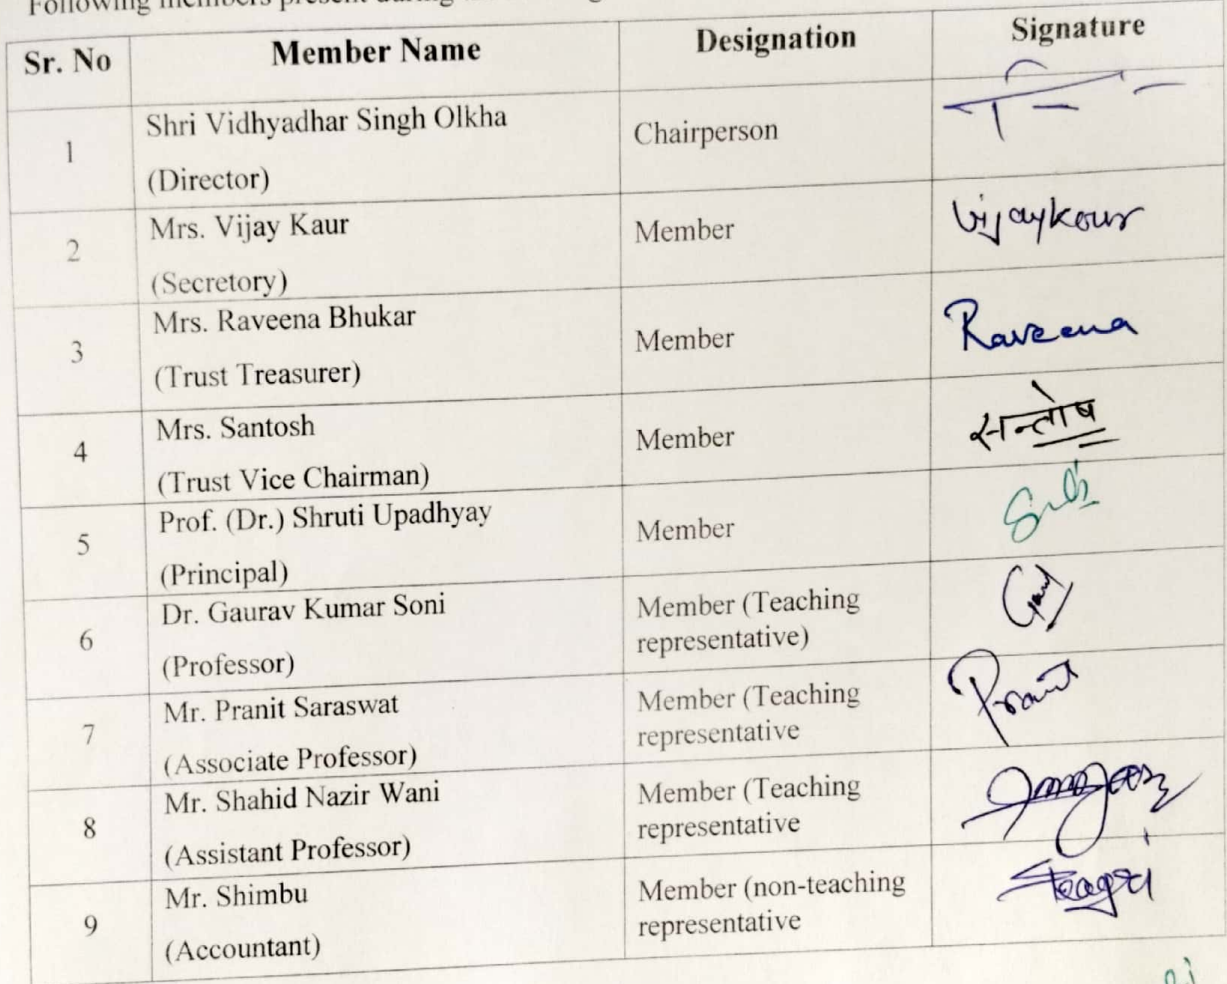 Following members present during
Sr. No Member Name Designation Signature
1 Shri Vidhyadhar Singh Olkha
(Director) Chairperson
2 Mrs. Vijay Kaur
(Secretory) Member Vijaykour
3 Mrs. Raveena Bhukar
(Trust Treasurer) Member Raveena
4 Mrs. Santosh
(Trust Vice Chairman) Member सन्तोष
5 Prof. (Dr.) Shruti Upadhyay
(Principal) Member
6 Dr. Gaurav Kumar Soni
(Professor) Member (Teaching
representative)
7 Mr. Pranit Saraswat
(Associate Professor) Member (Teaching
representative Pranit
8 Mr. Shahid Nazir Wani
(Assistant Professor) Member (Teaching
representative
9 Mr. Shimbu
(Accountant) Member (non-teaching
representative